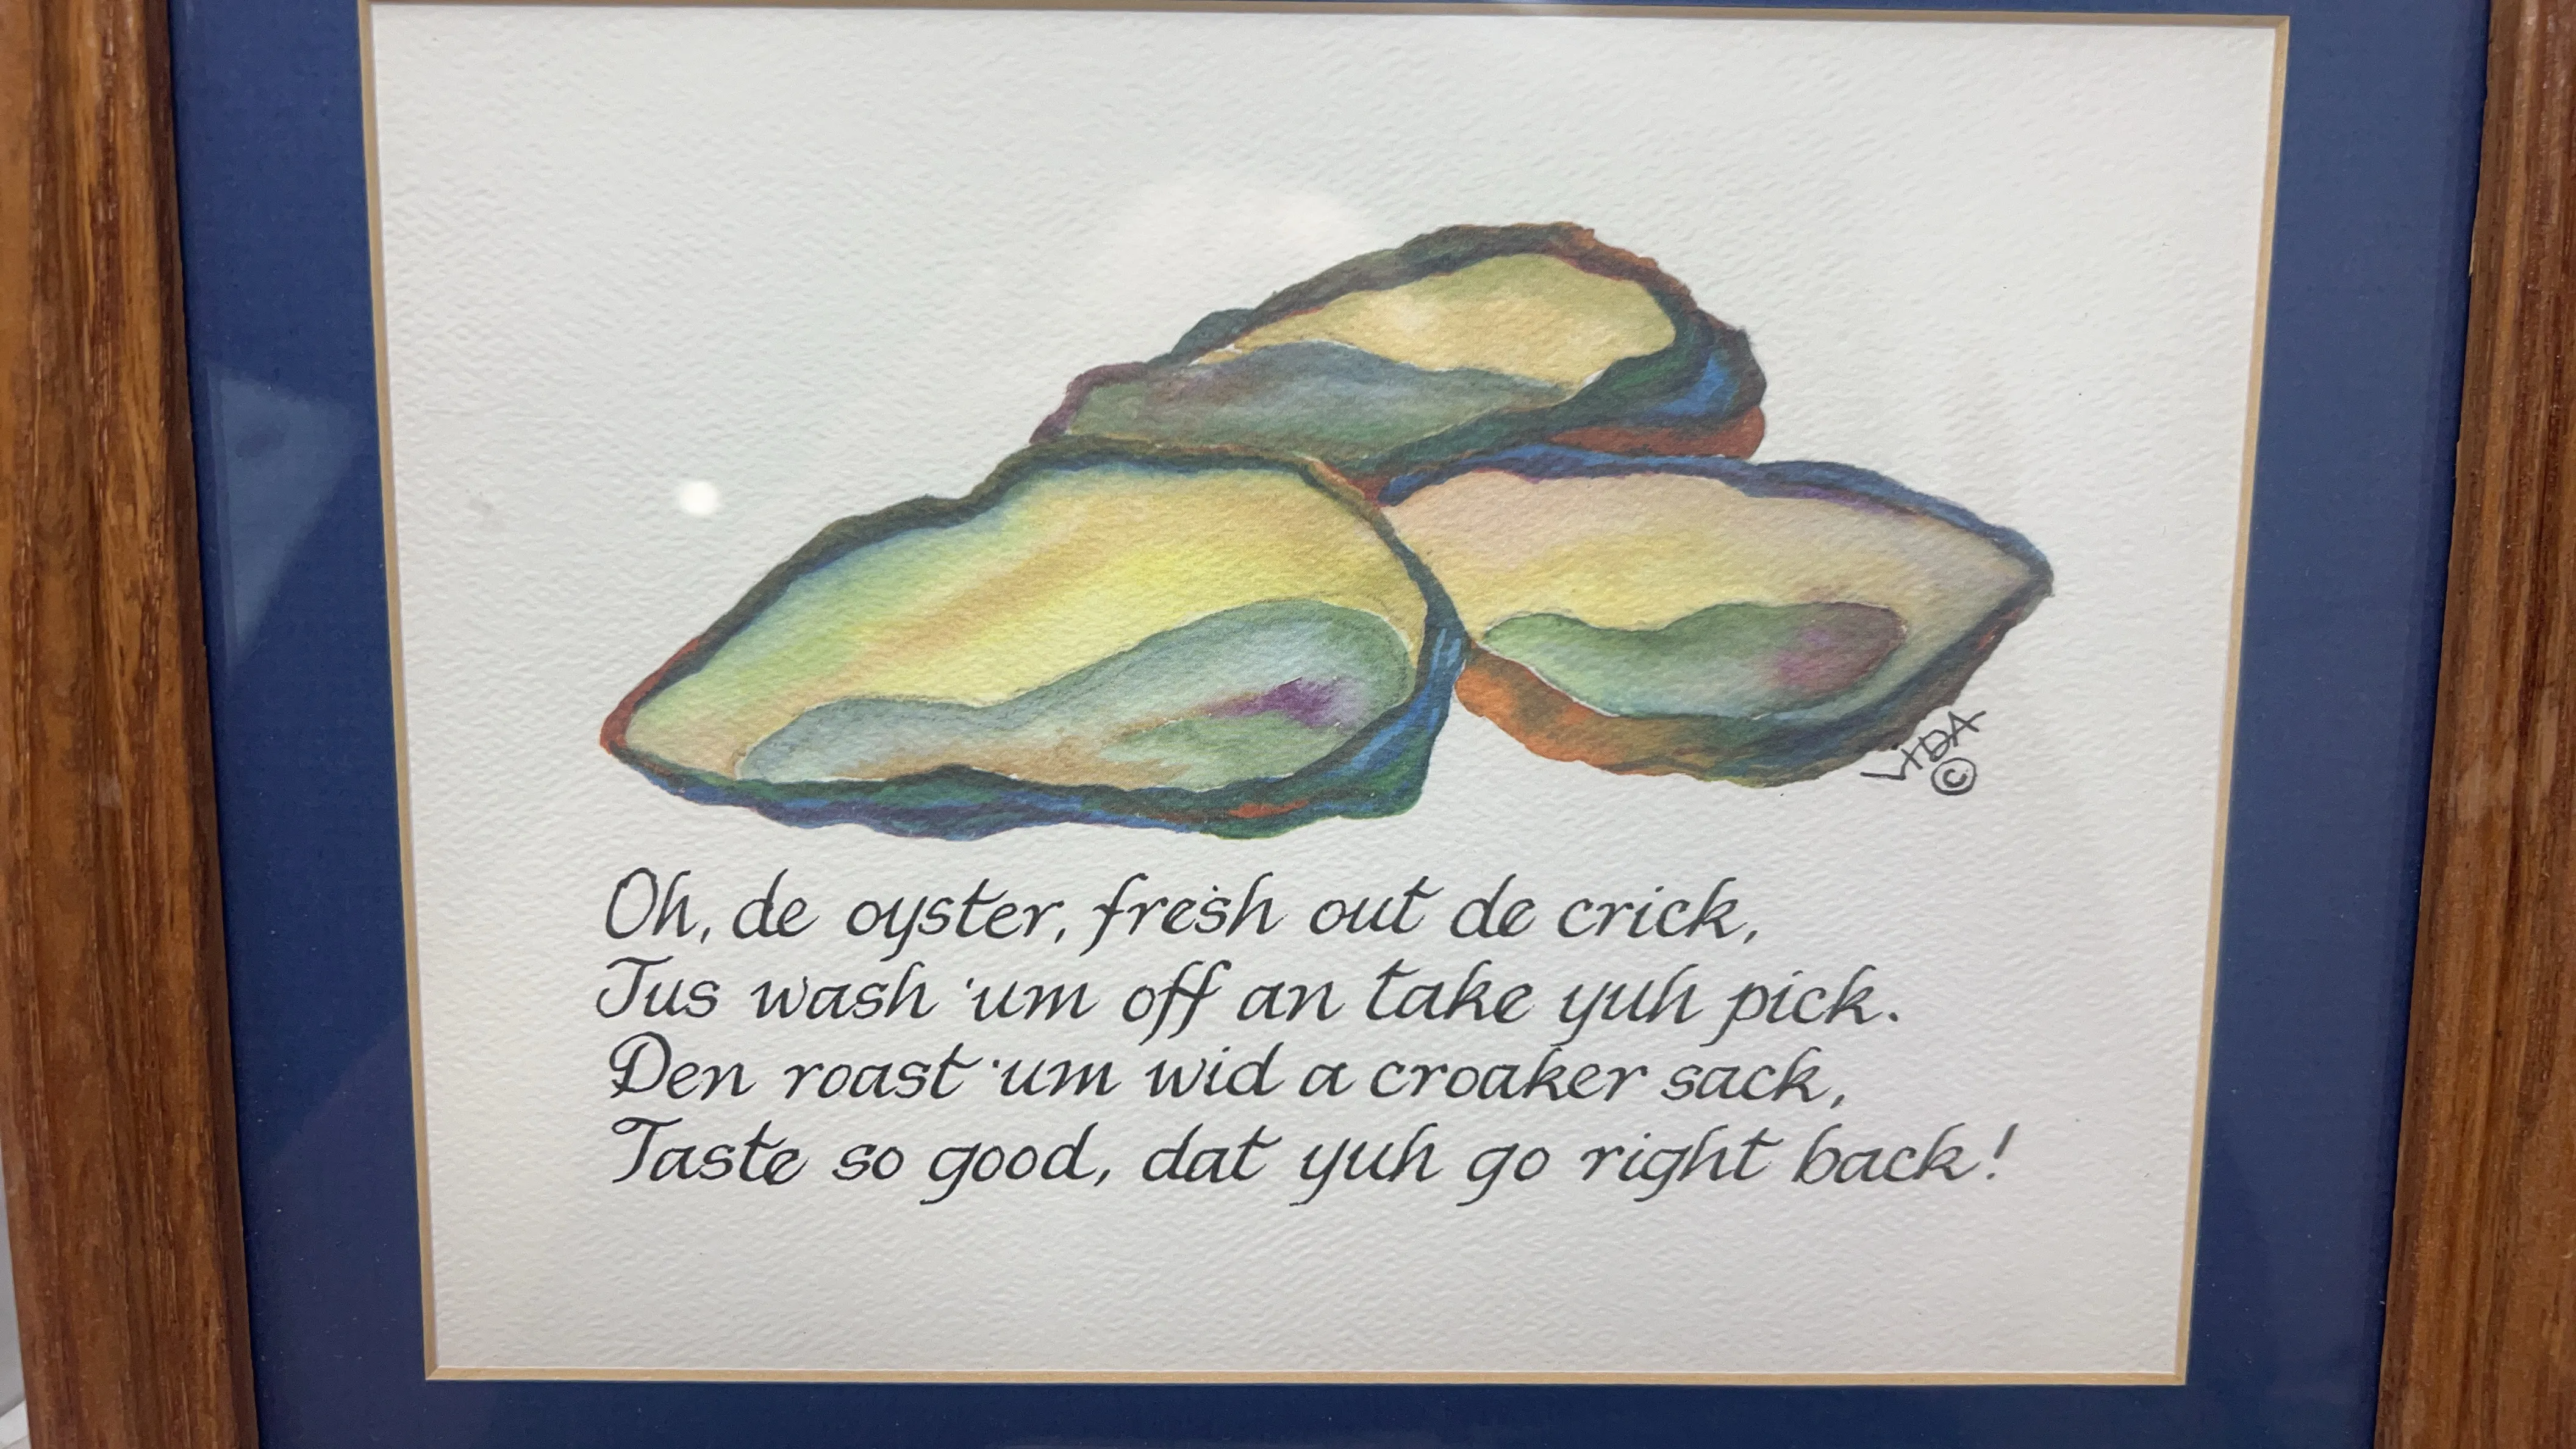 VIDA
©
Oh, de oyster, fresh out de crick,
Jus wash 'um off an take yuh pick.
Den roast 'um wid a croaker sack,
Taste so good, dat yuh go right back!